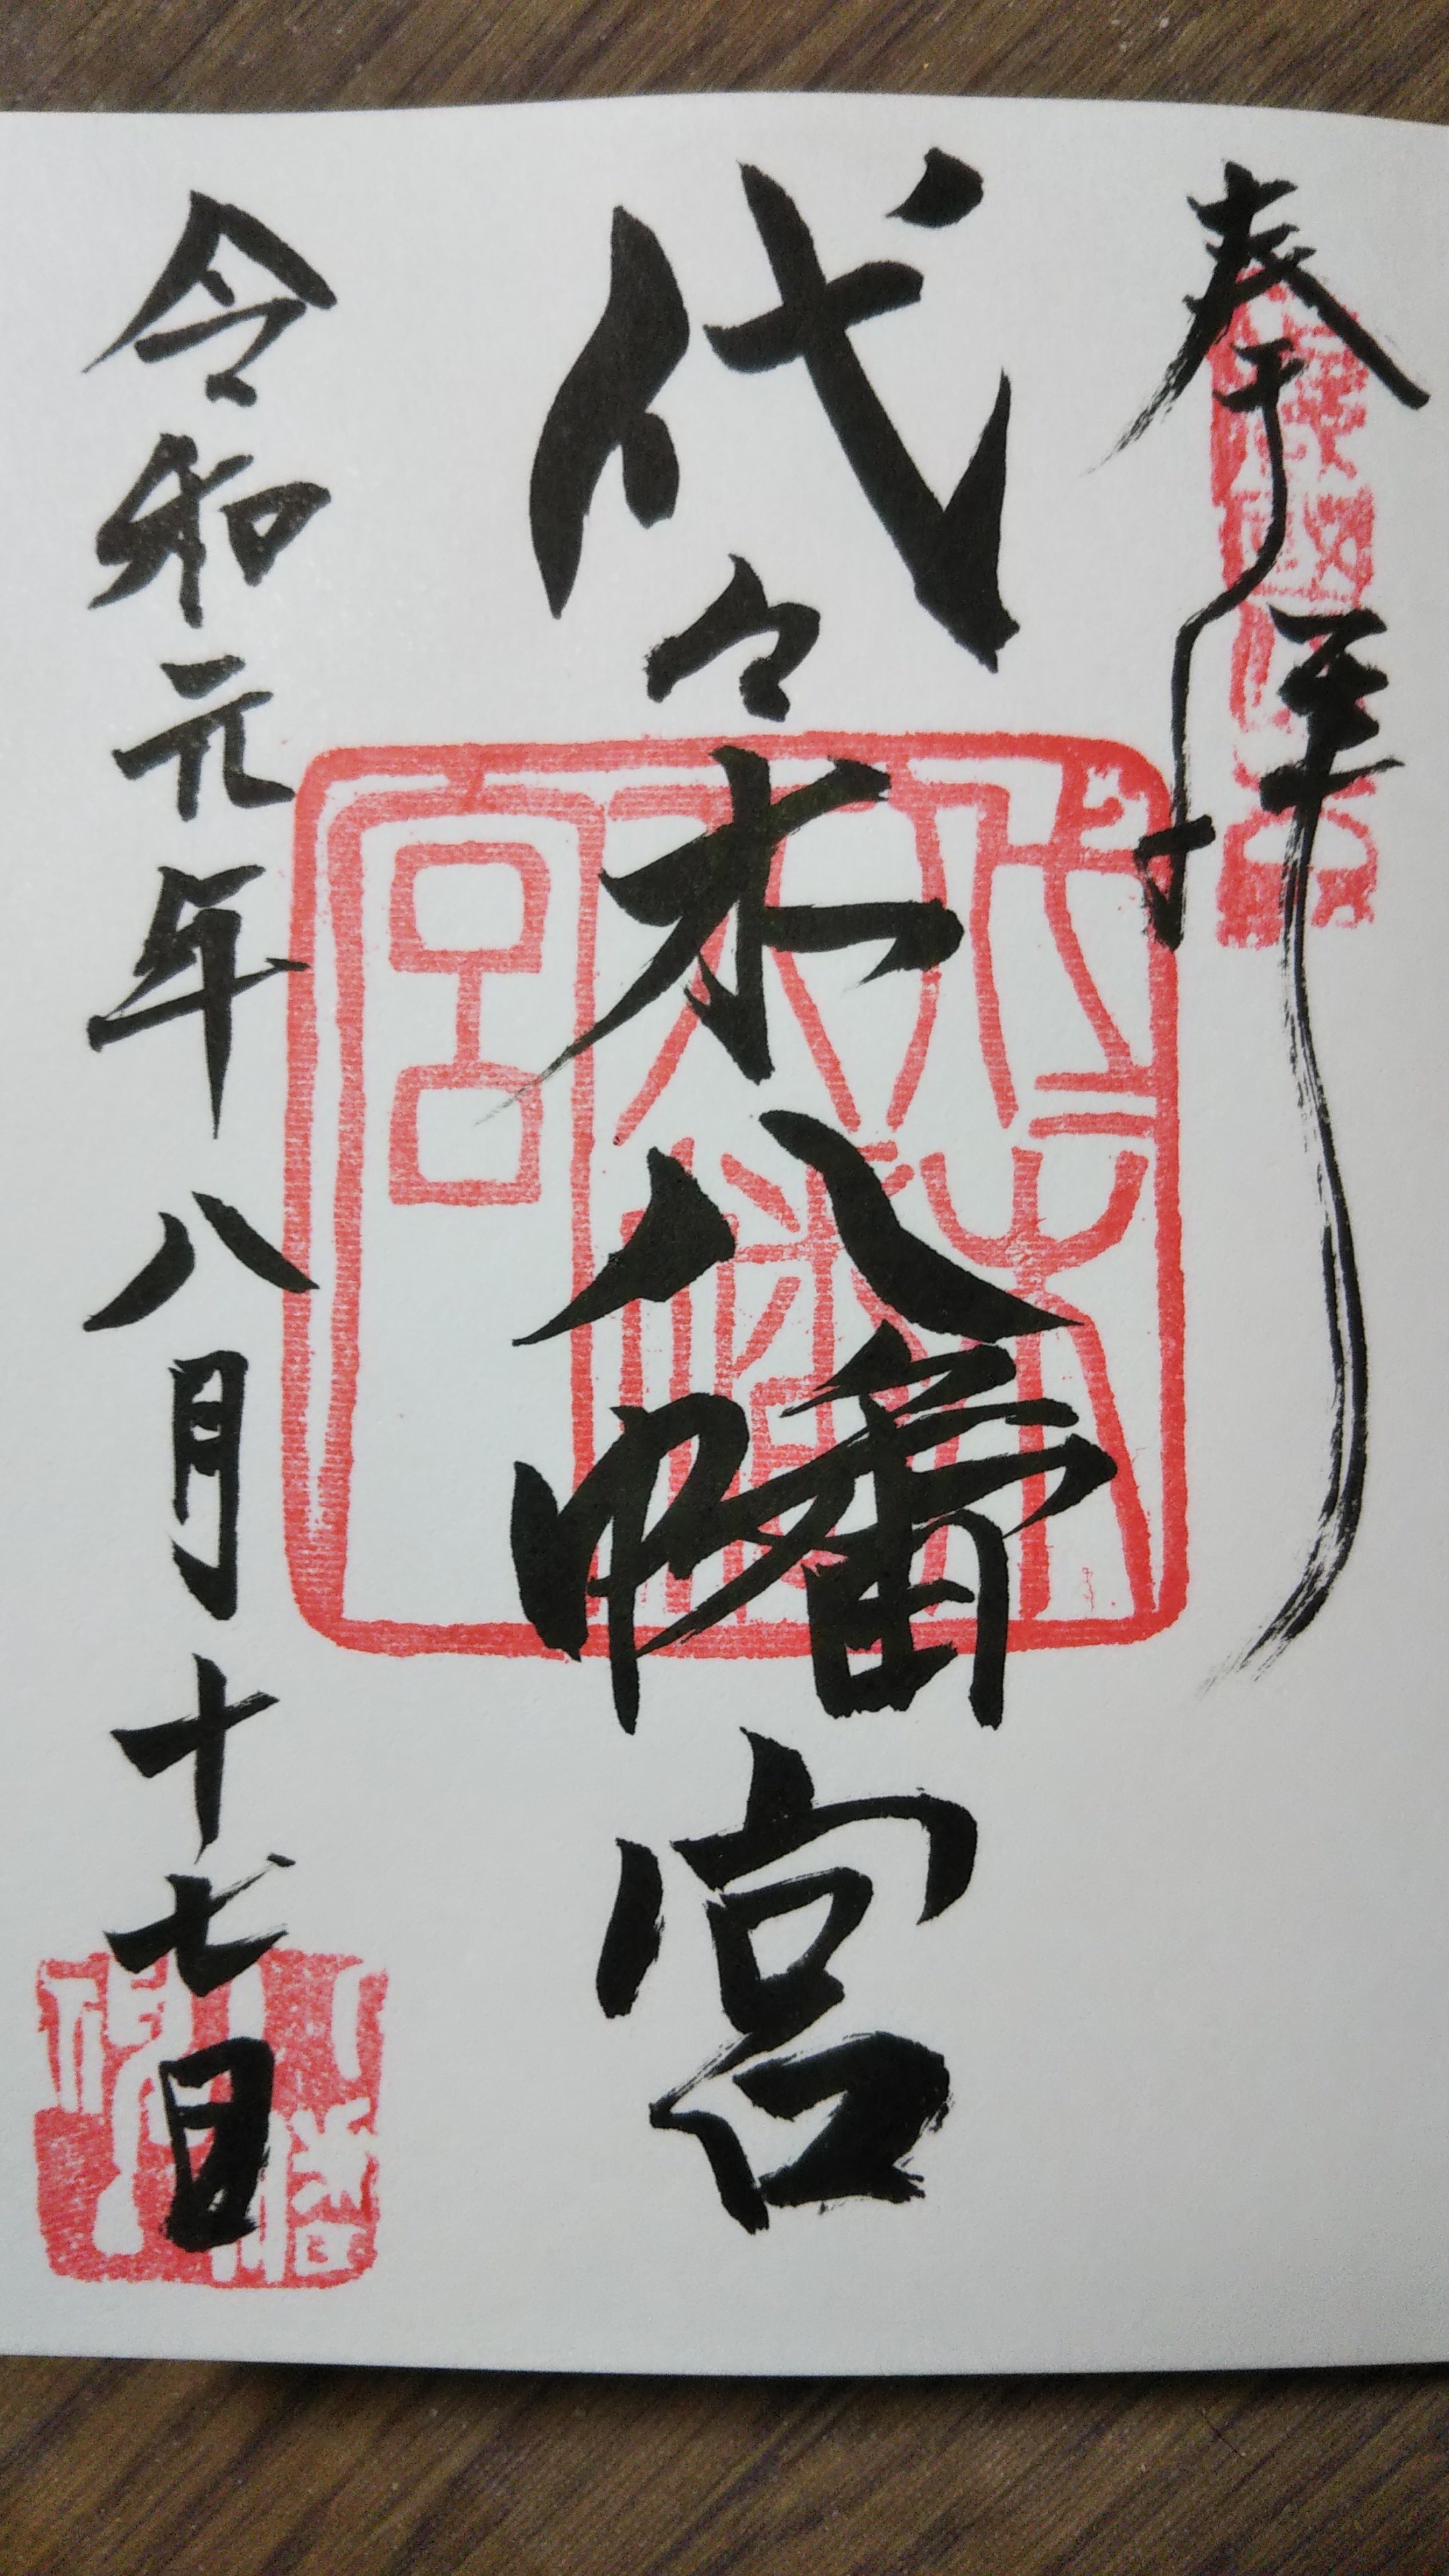 奉拝
代々木八幡宮
令和元年八月十七日
代々木八幡宮